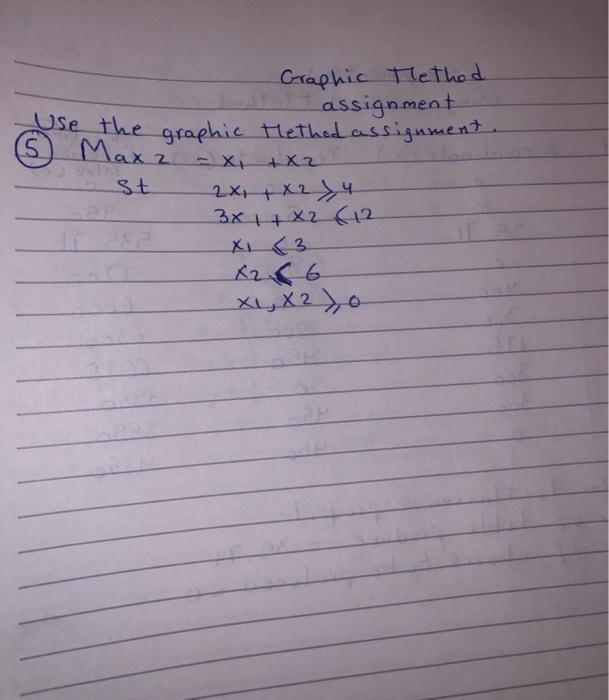 Graphic Method
assignment
Use the graphic Method assignment.
5 Max z = x1 + x2
St 2x1 + x2 ⩾ 4
3x1 + x2 ⩽ 12
x1 ⩽ 3
x2 ⩽ 6
x1, x2 ⩾ 0